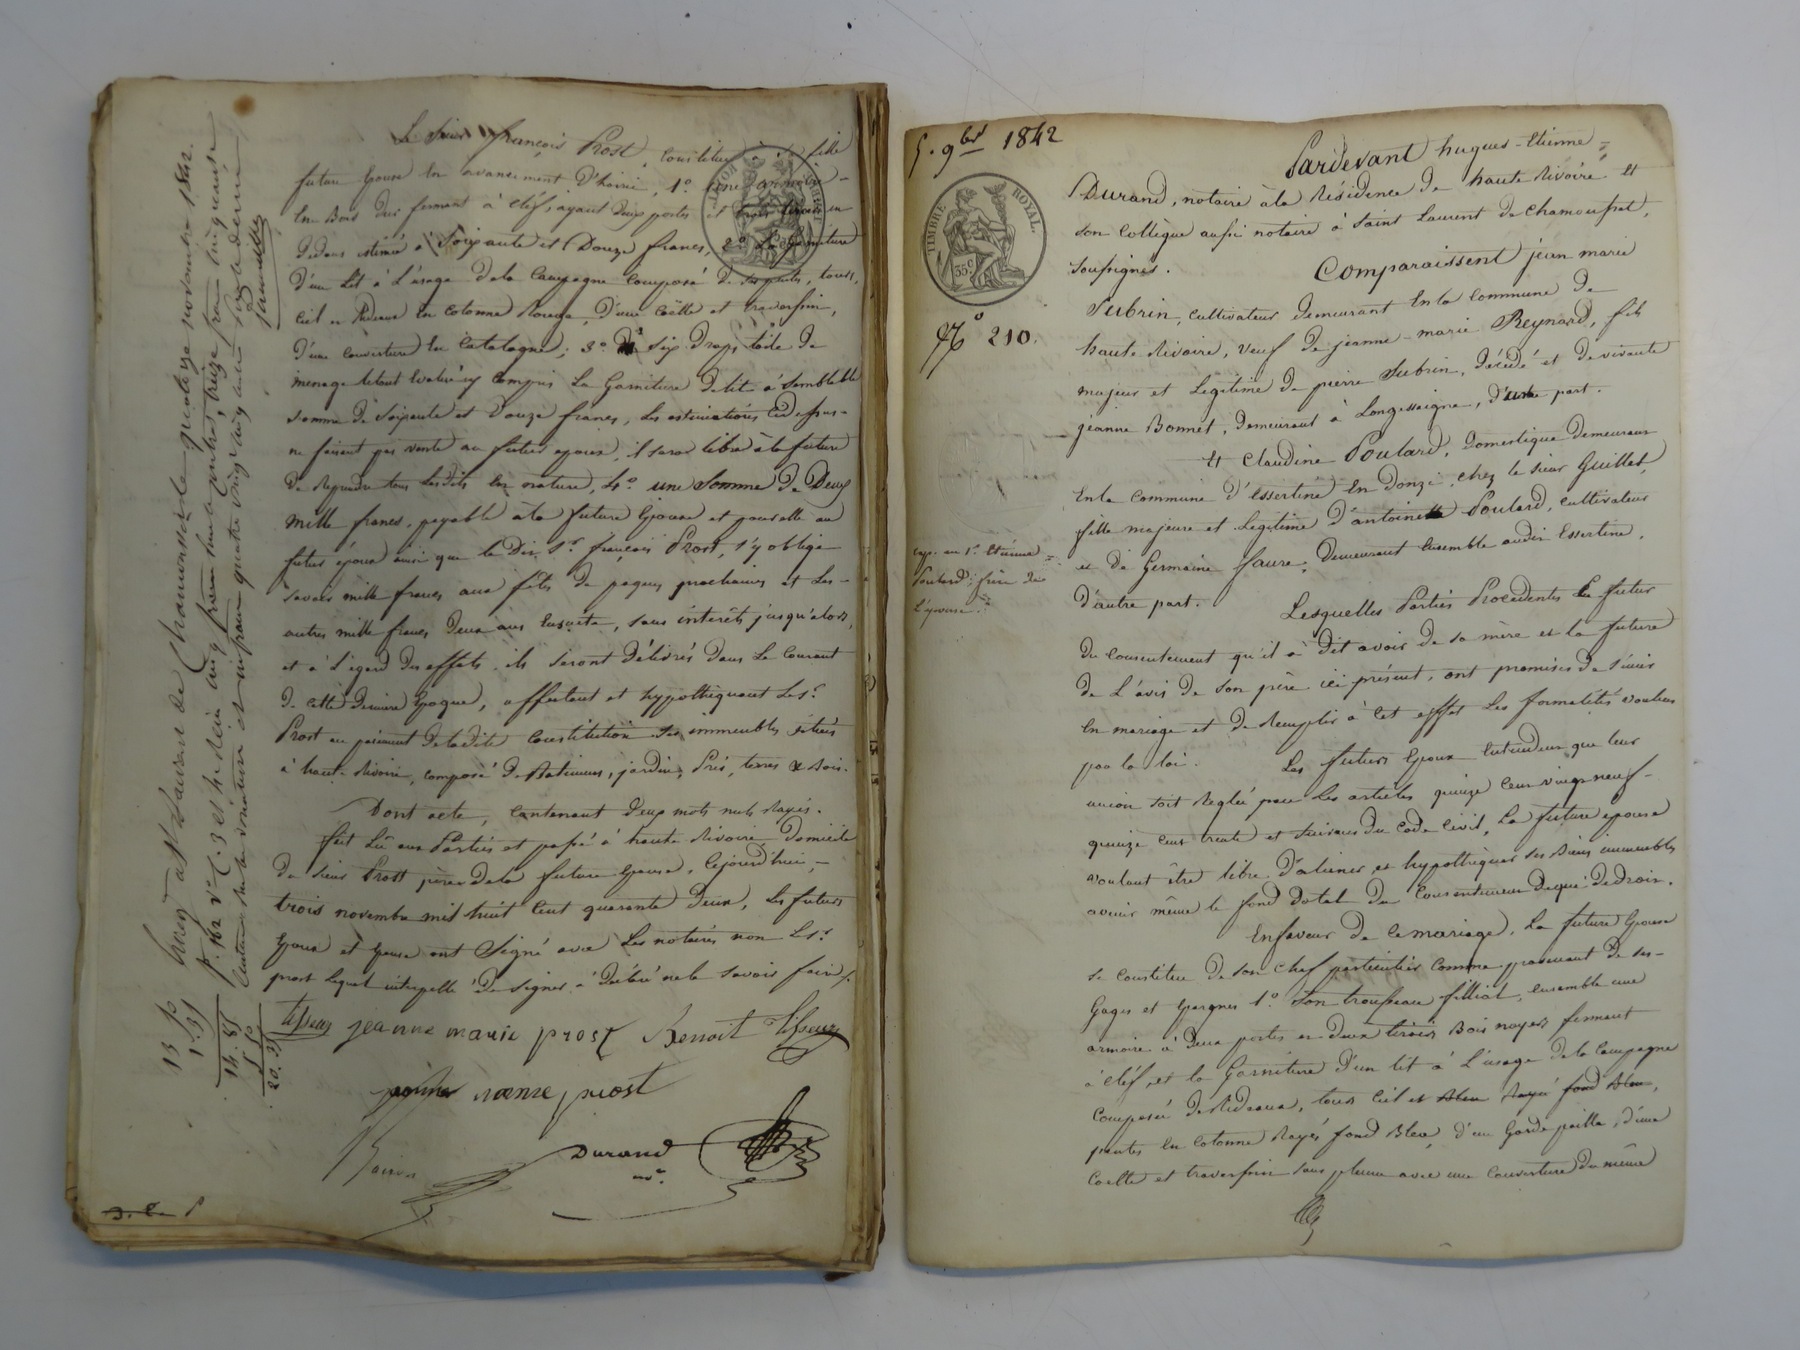 Le Sieur françois Prost, Constitue à sa fille
future Epouse En avancement D'hoirie, 1.o une armoire
En Bois dur fermant à clef, ayant Deux portes et trois tiroirs en
Dedans estimée à Soixante et Douze francs, 2.o La Garniture
D'un Lit à L'usage De la Campagne Composé De tours,
Ciel et Rideaux En Cotonne Rouge, D'une Coëtte et traversin,
D'une Couverture En Catalogne; 3.o six Draps toile De
menage le tout Evalué y Compris La Garniture De lit à Semblable
Somme De Soixante et Douze francs, Les estimations Cidessus
ne faisant pas vente au futur epoux, il sera libre à la future
De Reprendre tous Les Dits En nature, 4.o une Somme De Deux
mille francs, payable à la future Epouse et pour elle au
futur époux ainsi que le Dit S.r françois Prost, s'y oblige
Savoir mille francs aux fêtes De paques prochaines et Les
autres mille francs Deux ans Ensuite, Sans intérêts jusqu'alors,
et à L'égard Des effets ils Seront Délivrés Dans Le Courant
De cette Derniere Epoque, affectant et hypothéquant Le S.r
Prost au paiement De la Dite Constitution Ses immeubles situés
à haute Rivoire, Composé De Batiments, jardin, Prés, terres & Bois.
Dont acte, Contenant Deux mots nuls Rayés.
fait Lû aux Parties et passé à haute Rivoire Domicile
Du Sieur Prost père De la future Epouse, Cejourd'hui,
trois novembre mil huit Cent quarante Deux, Les futurs
Epoux et Epouse ont Signé avec Les notaires non Le S.r
prost Lequel interpellé De Signer à Déclaré ne le Savoir faire
tisseur jeanne marie prost Benoit tisseur
prost
Durand
n.re
Enreg. à S.t Laurent de Chamousset le quatorze novembre 1842.
13 50
1.35
14.85
5.50
20.35
5. 9bre 1842
TIMBRE ROYAL.
35c
N.o 210.
Exp. au S.r Etienne
Poulard, frère de
L'épouse.
Pardevant hugues-Etienne
Durand, notaire à la Résidence De haute Rivoire Et
Son Collègue aussi notaire à Saint Laurent De Chamousset,
Soussignés.
Comparaissent jean marie
Subrin, Cultivateur Demeurant En la Commune De
haute Rivoire, veuf De jeanne-marie Reynard, fils
majeur et Legitime De pierre Subrin, Décédé et De vivante
jeanne Bonnet, Demeurant à Longessaigne, D'une part.
Et Claudine Poulard, Domestique Demeurant
En la Commune D'Essertine En Donzi, Chez le Sieur Guillet,
fille majeure et Legitime D'antoine Poulard, Cultivateur
et De Germaine faure, Demeurant Ensemble audit Essertine,
D'autre part.
Lesquelles Parties Procédentes Le futur
Du Consentement qu'il à Dit avoir De Sa mère et la future
De L'avis De Son père ici présent, ont promises De S'unir
En mariage et De Remplir à Cet effet Les formalités voulues
par la loi.
Les futurs Epoux Entendent que leur
union Soit Reglée par Les articles quinze Cent vingt neuf
quinze Cent trente et Suivans Du Code Civil, La future epouse
voulant être libre D'aliener et hypothéquer Ses Biens immeubles
avenir même le fond Dotal Du Consentement De qui De Droit.
En faveur De Ce mariage, La future Epouse
Se Constitue De Son Chef particulier Comme provenant De Ses
Gages et Epargnes 1.o Son trousseau filliat, Ensemble une
armoire à Deux portes et Deux tiroirs Bois noyer fermant
à Clef, et la Garniture D'un lit à L'usage De la Campagne
Composée De Rideaux, tours Ciel et Bleu Rayé fond Bleu,
pentes En Cotonne Rayés fond Bleu, D'un Garde paille, D'une
Coëtte et traversin Sans plume avec une Couverture Du même